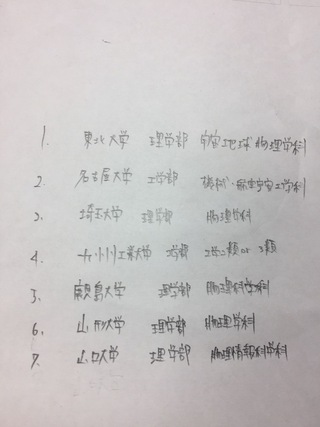 1. 東北大学 理学部 宇宙地球物理学科
2. 名古屋大学 工学部 機械・航空宇宙工学科
3. 埼玉大学 理学部 物理学科
4. 九州工業大学 工学部 工学2類 or 3類
5. 鹿児島大学 理学部 物理科学科
6. 山形大学 理学部 物理学科
7. 山口大学 理学部 物理情報科学科